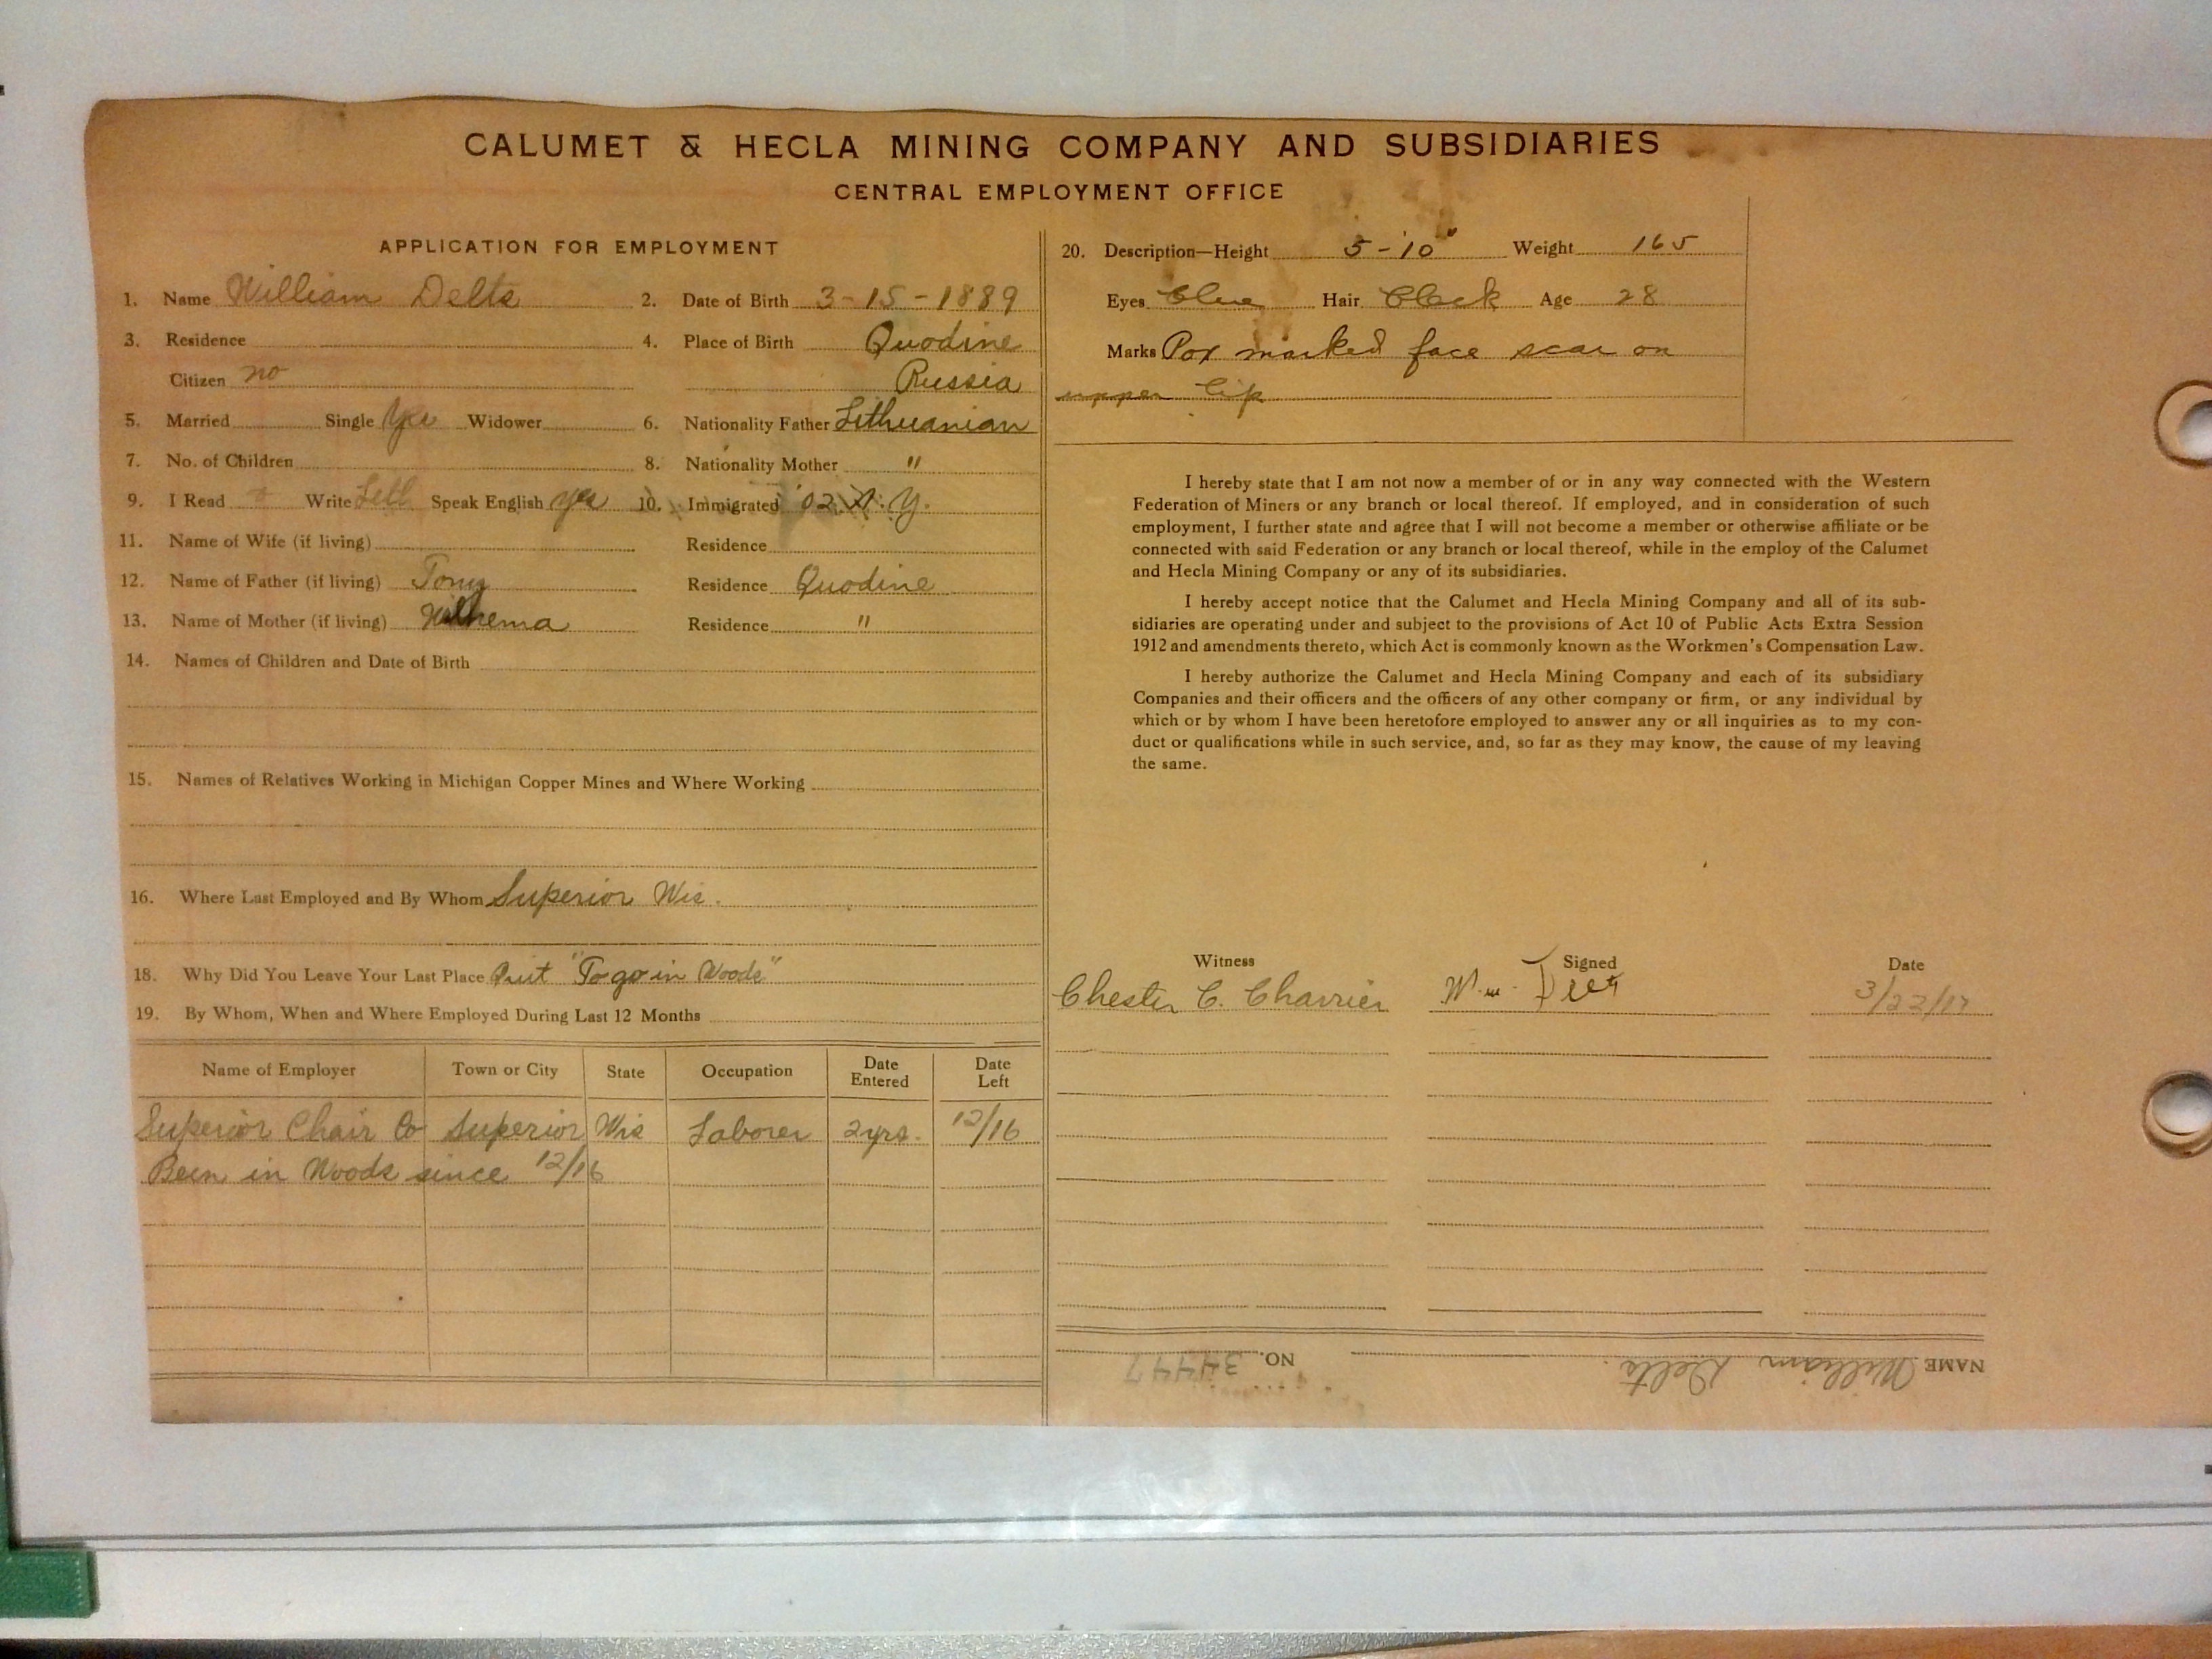 CALUMET & HECLA MINING COMPANY AND SUBSIDIARIES
CENTRAL EMPLOYMENT OFFICE
APPLICATION FOR EMPLOYMENT
1. Name William Delts 2. Date of Birth 3-15-1889
3. Residence 4. Place of Birth Quodine
Citizen no Russia
5. Married Single Yes Widower 6. Nationality Father Lithuanian
7. No. of Children 8. Nationality Mother "
9. I Read Write Lett Speak English yes 10. Immigrated '02 N.Y.
11. Name of Wife (if living) Residence
12. Name of Father (if living) Tony Residence Quodine
13. Name of Mother (if living) Residence "
14. Names of Children and Date of Birth
15. Names of Relatives Working in Michigan Copper Mines and Where Working
16. Where Last Employed and By Whom Superior Wis.
18. Why Did You Leave Your Last Place Quit "To go in Woods"
19. By Whom, When and Where Employed During Last 12 Months
Name of Employer Town or City State Occupation Date Entered Date Left
Superior Chair Co Superior Wis Laborer 2 yrs. 12/16
Been in Woods since 12/16
20. Description—Height 5-10" Weight 165
Eyes Blue Hair Black Age 28
Marks Pox marked face scar on
upper lip
I hereby state that I am not now a member of or in any way connected with the Western
Federation of Miners or any branch or local thereof. If employed, and in consideration of such
employment, I further state and agree that I will not become a member or otherwise affiliate or be
connected with said Federation or any branch or local thereof, while in the employ of the Calumet
and Hecla Mining Company or any of its subsidiaries.
I hereby accept notice that the Calumet and Hecla Mining Company and all of its sub-
sidiaries are operating under and subject to the provisions of Act 10 of Public Acts Extra Session
1912 and amendments thereto, which Act is commonly known as the Workmen's Compensation Law.
I hereby authorize the Calumet and Hecla Mining Company and each of its subsidiary
Companies and their officers and the officers of any other company or firm, or any individual by
which or by whom I have been heretofore employed to answer any or all inquiries as to my con-
duct or qualifications while in such service, and, so far as they may know, the cause of my leaving
the same.
Witness Signed Date
Chester C. Charrier Wm. 3/22/17
NAME William Delts. NO. 34447